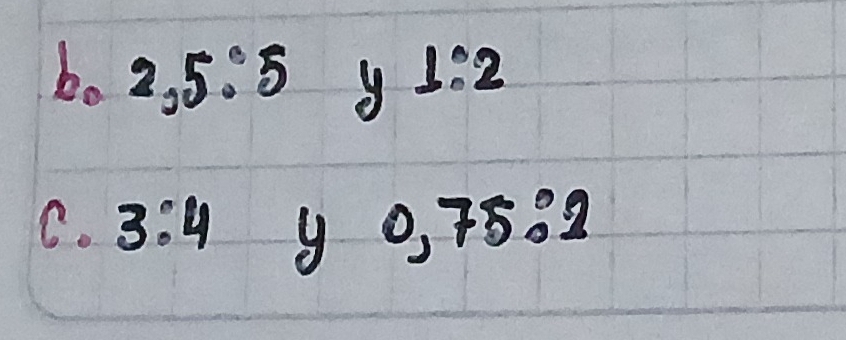 b. 2,5:5 y 1:2
c. 3:4 y 0,75:2